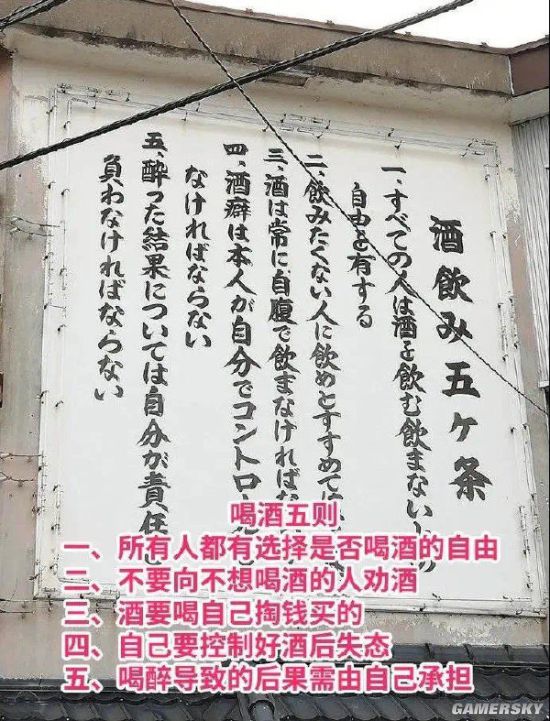 酒飲み五ケ条
一、すべての人は酒を飲む飲まない
自由を有する
二、飲みたくない人に飲めとすすめては
三、酒は常に自腹で飲まなければ
四、酒癖は本人が自分でコントロール
なければならない
五、酔った結果については自分が責任
負わなければならない
喝酒五则
一、所有人都有选择是否喝酒的自由
二、不要向不想喝酒的人劝酒
三、酒要喝自己掏钱买的
四、自己要控制好酒后失态
五、喝醉导致的后果需由自己承担
GAMERSKY